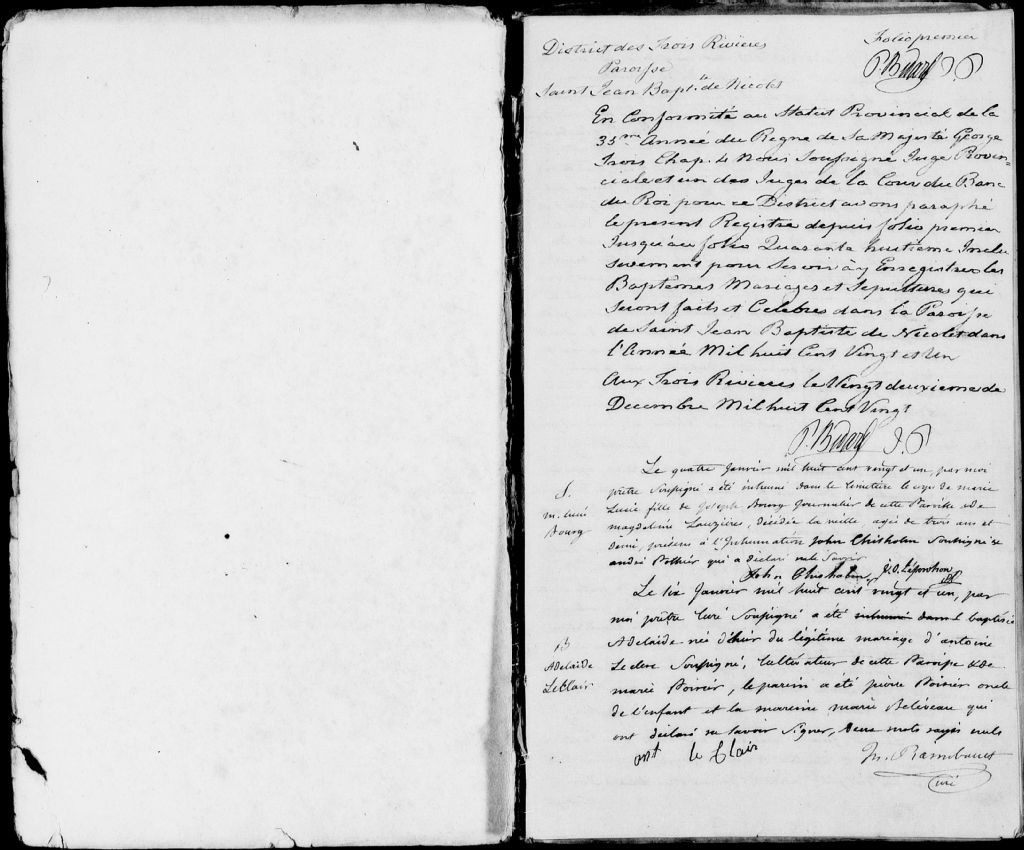 District des Trois Rivieres
Paroisse
Saint Jean Bapt.te de Nicolet
Folio premier
P. Bédard J. P
En Conformité au Statut Provincial de la
35me Année du Regne de Sa Majesté George
Trois Chap. 4 Nous Soussigné Juge Provin=
ciale et un des Juges de la Cour du Banc
du Roi pour ce District avons paraphé
le present Registre depuis folio premier
Jusqu'au folio Quarante huitieme Inclu
sivement pour Servir à y Enregistrer les
Baptemes Mariages et Sepultures qui
Seront faits et Celebres dans la Paroisse
de Saint Jean Baptiste de Nicolet dans
l'Année Mil huit Cent Vingt et Un
Aux Trois Rivieres le Vingt deuxieme de
Decembre Mil huit Cent Vingt
P. Bédard J. P
S.
m. Lucie
Bourg
Le quatre Janvier mil huit cent vingt et un, par moi
prêtre Soussigné a été inhumé dans le cemetiere le corps de marie
Lucie fille de Joseph Bourg Journalier de cette Paroisse & de
magdeleine Lauzieres, décédée la veille, agée de trois ans et
demi, présens à l'Inhumation John Chisholm Soussigné &
andré Pothier qui a déclaré ne le Savoir
John Chisholm J.O. Leprohon
B
Adelaide
LeClair
Le six Janvier mil huit cent vingt et un, par
moi prêtre Curé Soussigné a été inhumé dans l baptisée
Adelaide née d'hier du légitime mariage d'antoine
Leclerc Soussigné, Cultivateur de cette Paroisse & de
marie Poirier, le parein a été pierre Poirier oncle
de l'enfant et la mareine marie Beliveau qui
ont déclaré ne savoir signer, deux mots rayés nuls
ant le Clair
M. Raimbault
Curé